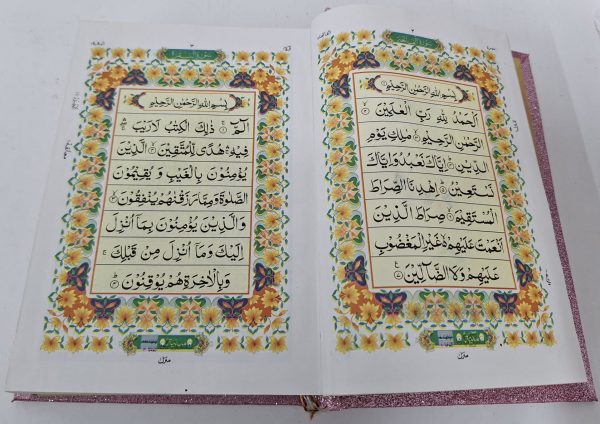 بِسْمِ اللهِ الرَّحْمٰنِ الرَّحِيْمِ
اَلْحَمْدُ لِلّٰهِ رَبِّ الْعٰلَمِيْنَ
الرَّحْمٰنِ الرَّحِيْمِ مٰلِكِ يَوْمِ
الدِّيْنِ اِيَّاكَ نَعْبُدُ وَاِيَّاكَ
نَسْتَعِيْنُ اِهْدِنَا الصِّرَاطَ
الْمُسْتَقِيْمَ صِرَاطَ الَّذِيْنَ
اَنْعَمْتَ عَلَيْهِمْ غَيْرِ الْمَغْضُوْبِ
عَلَيْهِمْ وَلَا الضَّآلِّيْنَ
بِسْمِ اللهِ الرَّحْمٰنِ الرَّحِيْمِ
الٓمّٓ ذٰلِكَ الْكِتٰبُ لَا رَيْبَ
فِيْهِ هُدًى لِّلْمُتَّقِيْنَ الَّذِيْنَ
يُؤْمِنُوْنَ بِالْغَيْبِ وَ يُقِيْمُوْنَ
الصَّلٰوةَ وَمِمَّا رَزَقْنٰهُمْ يُنْفِقُوْنَ
وَالَّذِيْنَ يُؤْمِنُوْنَ بِمَآ اُنْزِلَ
اِلَيْكَ وَمَآ اُنْزِلَ مِنْ قَبْلِكَ
وَبِالْاٰخِرَةِ هُمْ يُوْقِنُوْنَ